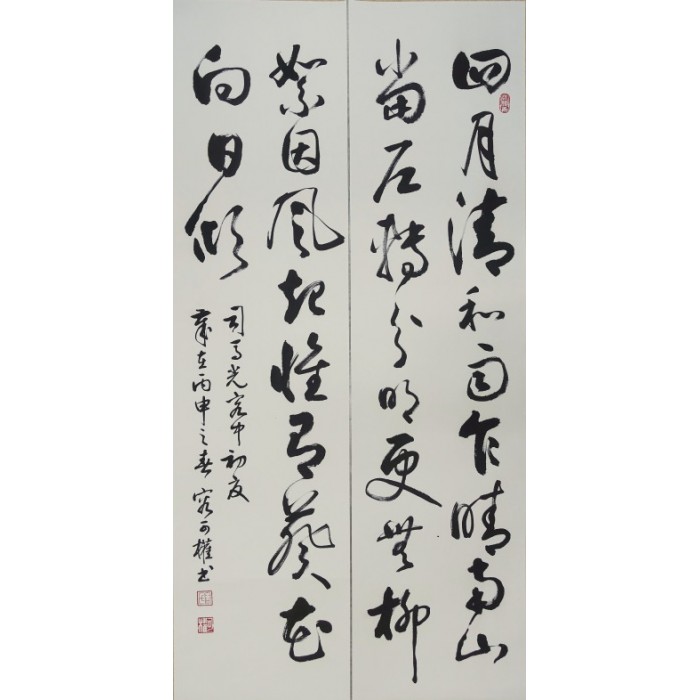 四月清和雨乍晴南山
當户轉分明更無柳
絮因風起惟有葵花
向日傾
司马光客中初夏
歲在丙申之春可權书